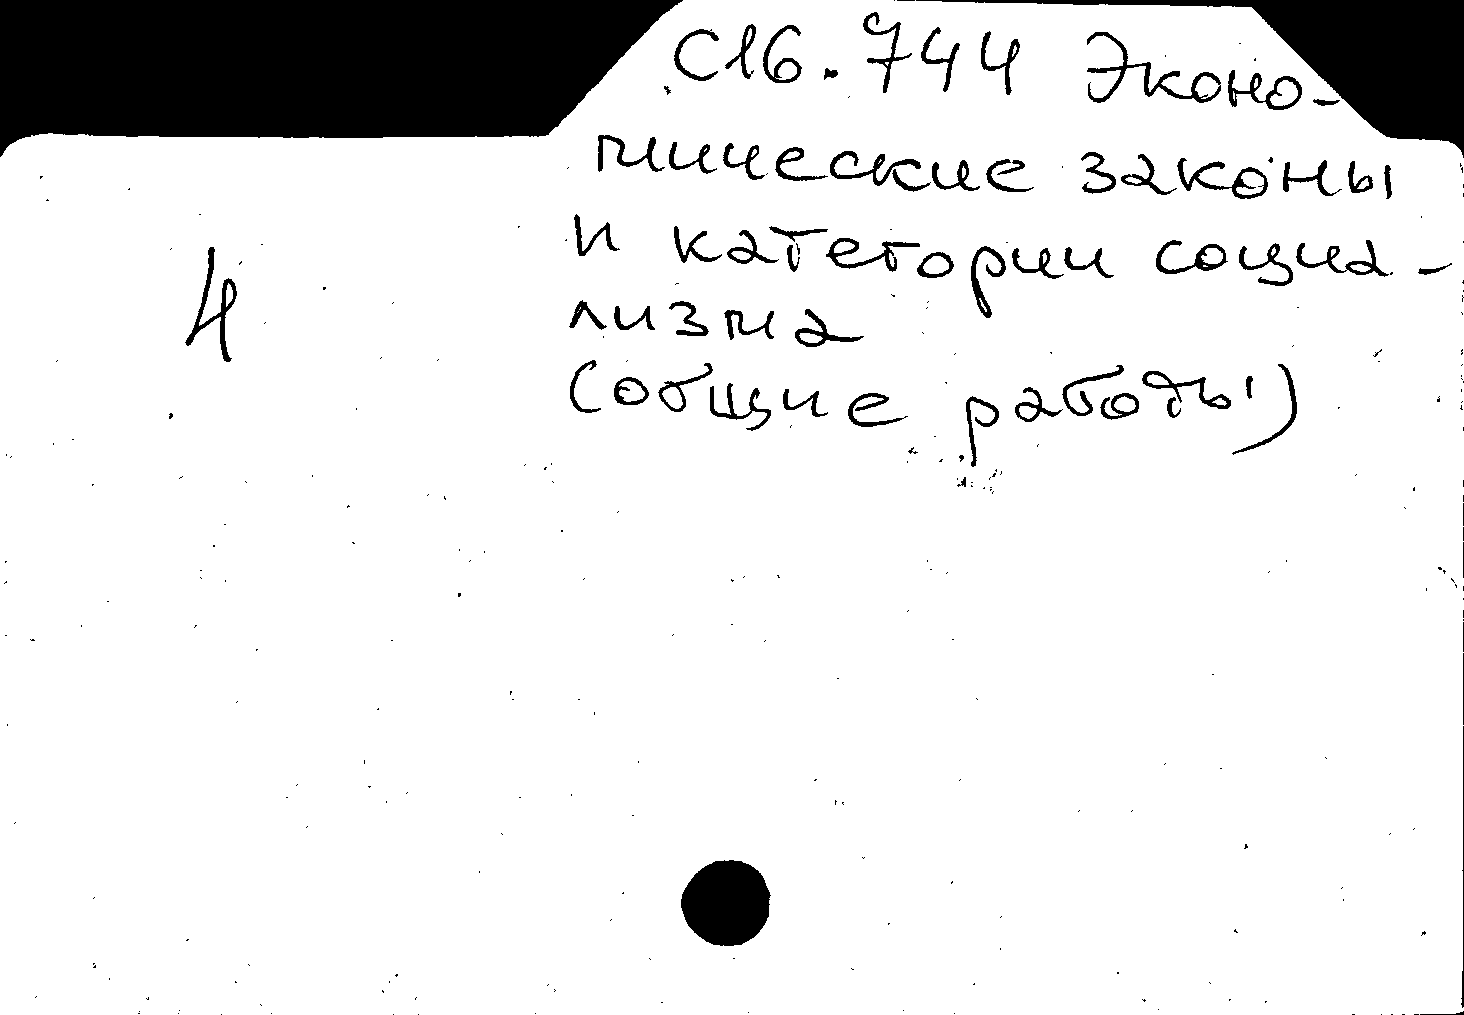 С16.744 Эконо-
мические законы
и категории социа-
лизма
(общие работы)
4